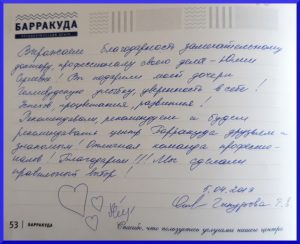 БАРРАКУДА
Выражаем благодарность замечательному
доктору, профессионалу своего дела - Юлии
Вы подарили моей дочери
Голливудскую улыбку, уверенность в себе!
Успехов, процветания, развития!
Рекомендовали, рекомендуем и будем
рекомендовать центр Барракуда друзьям и
знакомым! Отличная команда профессио-
налов! Благодарим!!! Мы сделали
правильный выбор!
5.04.2019
53 | БАРРАКУДА
Спасибо, что пользуетесь услугами нашего центра